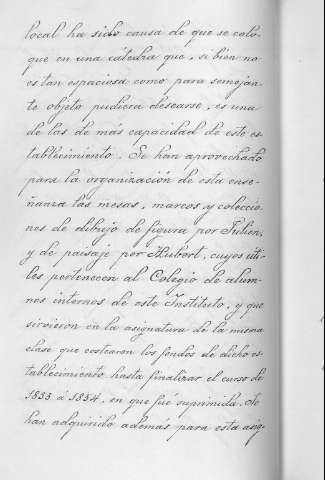 local ha sido causa de que se colo-
que en una cátedra que, si bien no
es tan espaciosa como para semejan-
te objeto pudiera desearse, es una
de las de más capacidad de este es-
tablecimiento. Se han aprovechado
para la organización de esta ense-
ñanza las mesas, marcos y coleccio-
nes de dibujo de figura por Julien,
y de paisaje por Hubert, cuyos úti-
les pertenecen al Colegio de alum-
nos internos de este Instituto, y que
sirvieron en la asignatura de la misma
clase que costearon los fondos de dicho es-
tablecimiento hasta finalizar el curso de
1853 á 1854, en que fué suprimida. Se
han adquirido además para esta asig-